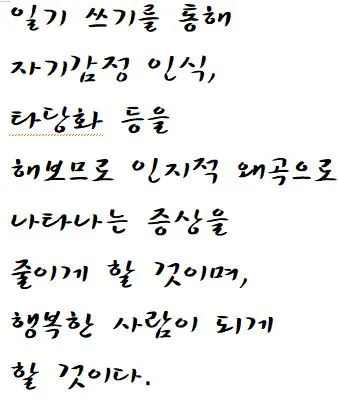 일기 쓰기를 통해
자기감정 인식,
타당화 등을
해보므로 인지적 왜곡으로
나타나는 증상을
줄이게 할 것이며,
행복한 사람이 되게
할 것이다.